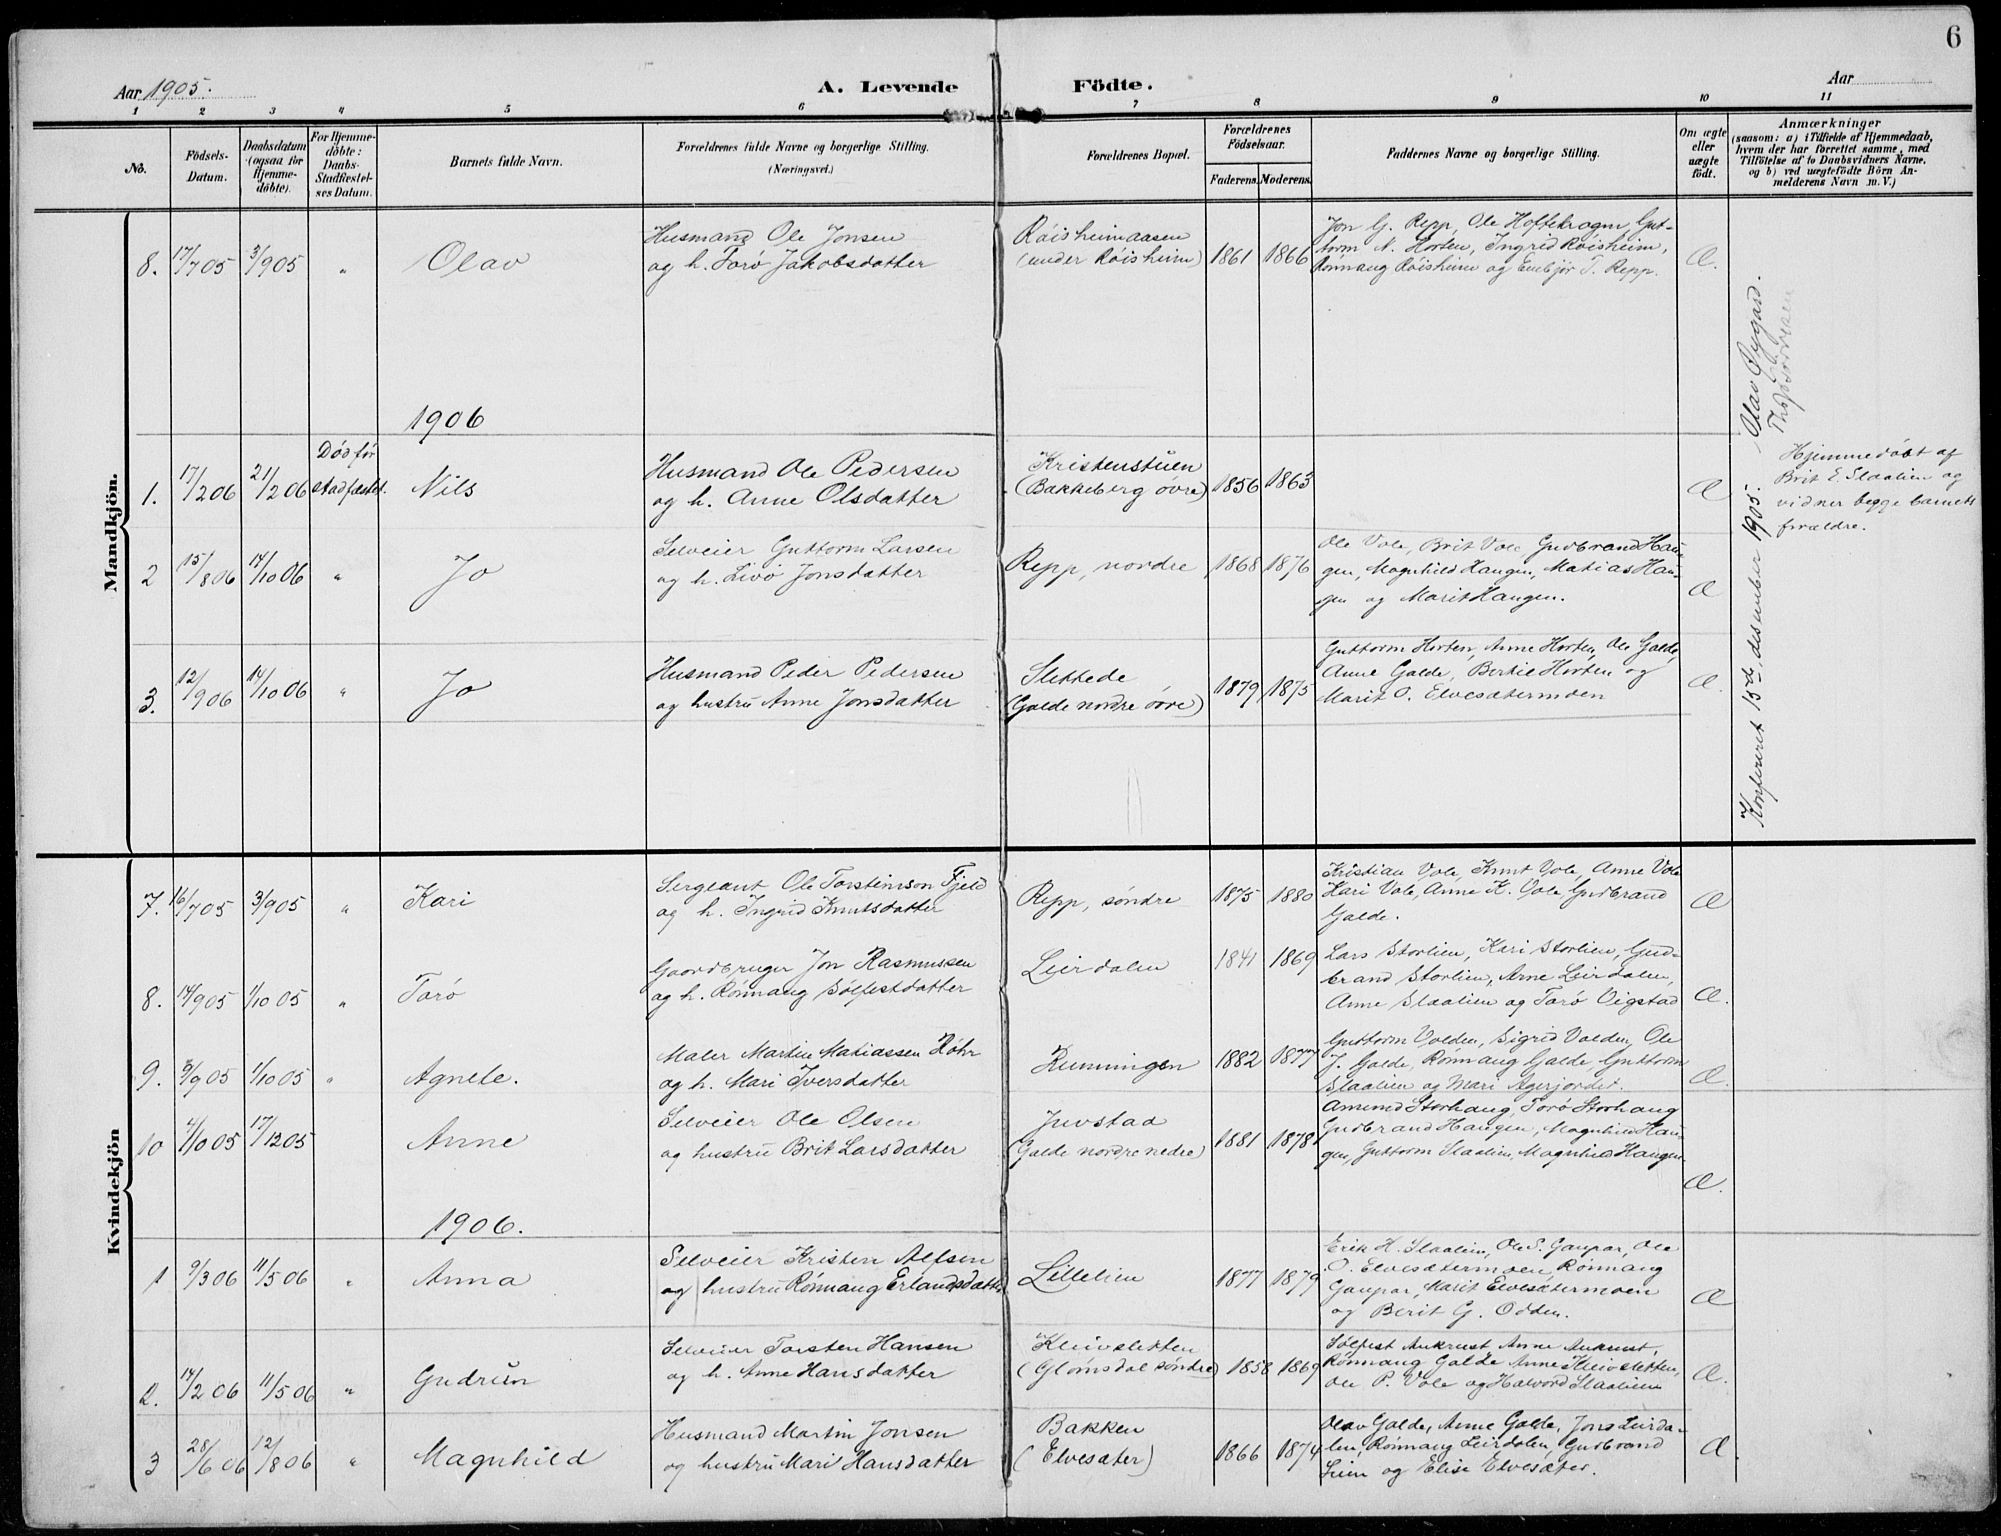 6
Aar 1905.
A. Levende Födte.
Aar
1 2 3 4 5 6 7 8 9 10 11
No.
Födsels-
Datum.
Daabsdatum
(ogsaa for
Hjemme-
döbte).
For Hjemme-
döbte:
Daabs-
Stadfestel-
ses Datum.
Barnets fulde Navn.
Forældrenes fulde Navne og borgerlige Stilling.
(Næringsvei.)
Forældrenes Bopæl.
Forældrenes
Födselsaar.
Faderens. Moderens.
Faddernes Navne og borgerlige Stilling.
Om ægte
eller
uægte
födt.
Anmærkninger
(saasom: a) i Tilfælde af Hjemmedaab,
hvem der har forrettet samme, med
Tilföielse af to Daabsvidners Navne,
og b) ved uægtefödte Börn An-
melderens Navn m. V.)
Mandkjön.
8. 17/7 05 3/9 05 " Olav
Husmand Ole Jonsen
og h. Torø Jakobsdatter
Røisheimaasen
(under Røisheim)
1861 1866
Jon G. Repp, Ole Hoftekrogen, Gut-
torm N. Horten, Ingrid Røisheim,
Rønnaug Røisheim og Embjør T. Repp.
Æ.
1906
1. 17/2 06 21/2 06
Død før
stadfæstet.
Nils
Husmand Ole Pedersen
og h. Anne Olsdatter
Kristenstuen
(Bakkeberg øvre)
1856 1863
Æ
Hjemmedøbt af
Brit E. Slaalien og
vidner begge barnets
forældre.
2 15/8 06 14/10 06 " Jo
Selveier Guttorm Larsen
og h. Livø Jonsdatter
Repp, nordre
1868 1876
Ole Vole, Brit Vole Gudbrand Hau-
gen, Magnhild Haugen, Matias Hau-
gen og Marit Haugen.
Æ
3. 12/9 06 14/10 06 " Jo
Husmand Peder Pedersen
og hustru Anne Jonsdatter
Slettede
(Galde nordre øvre)
1879 1875
Guttorm Horten, Anne Horten, Ole Galde,
Anne Galde, Bertil Horten og
Marit O. Elvesætermoen
Æ
Konfereret 15de desember 1905. Olav Øygard.
Kvindekjön
7. 16/7 05 3/9 05 " Kari
Sergeant Ole Torsteinson Fjeld
og h. Ingrid Knutsdatter
Repp, søndre
1875 1880
Kristian Vole, Knut Vole, Anne Vole
Kari Vole, Anne K. Vole, Gudbrand
Galde.
Æ
8. 14/9 05 1/10 05 " Torø
Gaardbruger Jon Rasmussen
og h. Rønnaug Sølfestdatter
Leirdalen
1841 1869
Lars Storlien, Kari Storlien, Gud-
brand Storlien, Arne Leirdalen,
Anne Slaalien og Torø Vigstad
Æ.
9. 8/9 05 1/10 05 " Agnete.
Maler Martin Matiassen Røhr
og h. Mari Iversdatter
Rusningen
1882 1877
Guttorm Volden, Sigrid Volden, Ole
J. Galde, Rønnaug Galde, Guttorm
Slaalien og Mari Agerjordet.
Æ.
10 4/10 05 17/12 05 Anne
Selveier Ole Olsen
og hustru Brit Larsdatter
Juvstad
(Galde nordre nedre)
1881 1878
Amund Storhaug, Torø Storhaug
Gudbrand Haugen, Magnhild Hau-
gen, Guttorm Slaalien, Magnhild Haugen
Æ.
1906.
1 9/3 06 11/5 06 " Anna
Selveier Kristen Alfsen
og hustru Rønnaug Erlandsdatter
Lillelien
1877 1879
Erik H. Slaalien, Ole S. Gaupar, Ole
O. Elvesætermoen, Rønnaug
Gaupar, Marit Elvesætermoen
og Berit G. Odden.
Æ
2. 14/2 06 11/5 06 " Gudrun
Selveier Torsten Hansen
og h. Anne Hansdatter
Kleivsletten
(Glømsdal søndre)
1858 1869
Sølfest Aukrust, Anne Aukrust,
Rønnaug Galde, Anne Kleivsletten,
Ole P. Vole og Halvord Slaalien
Æ.
3 28/6 06 12/8 06 " Magnhild
Husmand Martin Jonsen
og hustru Mari Hansdatter
Bakken
(Elvesæter)
1866 1874
Olav Galde, Anne Galde, Jons Leirda-
len, Rønnaug Leirdalen, Gudbrand
Lien og Elise Elvesæter.
Æ